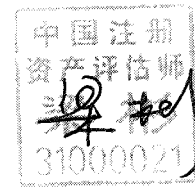 中国注册
资产评估师
31000021